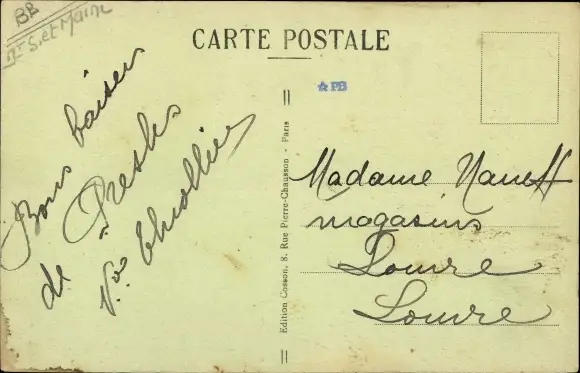 BB
S. et Marne
CARTE POSTALE
PB
Bons baisers
de Presles
Vve Thiollier
Edition Cosson, 8, Rue Pierre-Chausson - Paris
Madame
magasins
Louvre
Louvre